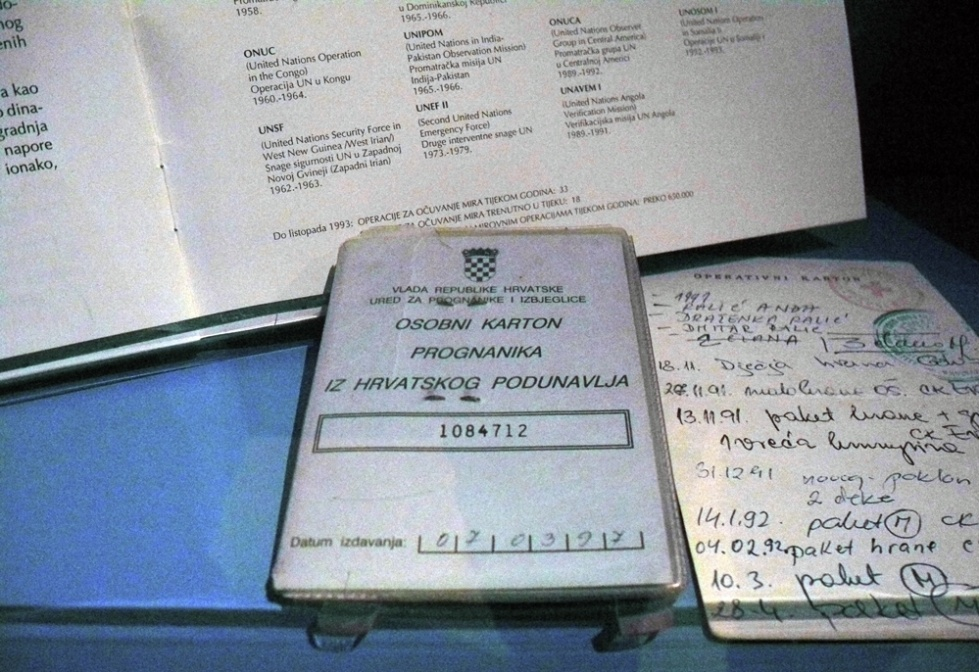 nog
enih
a kao
dina-
gradnja
napore
ionako,
1958.
ONUC
(United Nations Operation
in the Congo)
Operacija UN u Kongu
1960.-1964.
UNSF
(United Nations Security Force in
West New Guinea /West Irian/)
Snage sigurnosti UN u Zapadnoj
Novoj Gvineji (Zapadni Irian)
1962.-1963.
u Dominikanskoj Republici
1965.-1966.
UNIPOM
(United Nations in India-
Pakistan Observation Mission)
Promatračka misija UN
Indija-Pakistan
1965.-1966.
UNEF II
(Second United Nations
Emergency Force)
Druge interventne snage UN
1973.-1979.
ONUCA
(United Nations Observer
Group in Central America)
Promatračka grupa UN
u Centralnoj Americi
1989.-1992.
UNAVEM I
(United Nations Angola
Verification Mission)
Verifikacijska misija UN Angola
1989.-1991.
UNOSOM I
(United Nations Operation
in Somalia I)
Operacije UN u Somaliji I
1992.-1993.
Do listopada 1993; OPERACIJE ZA OČUVANJE MIRA TIJEKOM GODINA: 33
ZA OČUVANJE MIRA TRENUTNO U TIJEKU: 18
MIROVNIM OPERACIJAMA TIJEKOM GODINA: PREKO 650.000
VLADA REPUBLIKE HRVATSKE
URED ZA PROGNANIKE I IZBJEGLICE
OSOBNI KARTON
PROGNANIKA
IZ HRVATSKOG PODUNAVLJA
1084712
Datum izdavanja: 07 03 97
OPERATIVNI KARTON
- 1992.
- RALIĆ ANĐA
- DRAŽENKA RALIĆ
- DMITAR RALIĆ
18.11. Dječja hrana
13.11.91. paket hrane +
1 vreća
31.12.91 novog. poklon
2 deke
14.1.92. paket M CK
04.02.92. paket hrane C
10.3. paket M
28.4. paket M